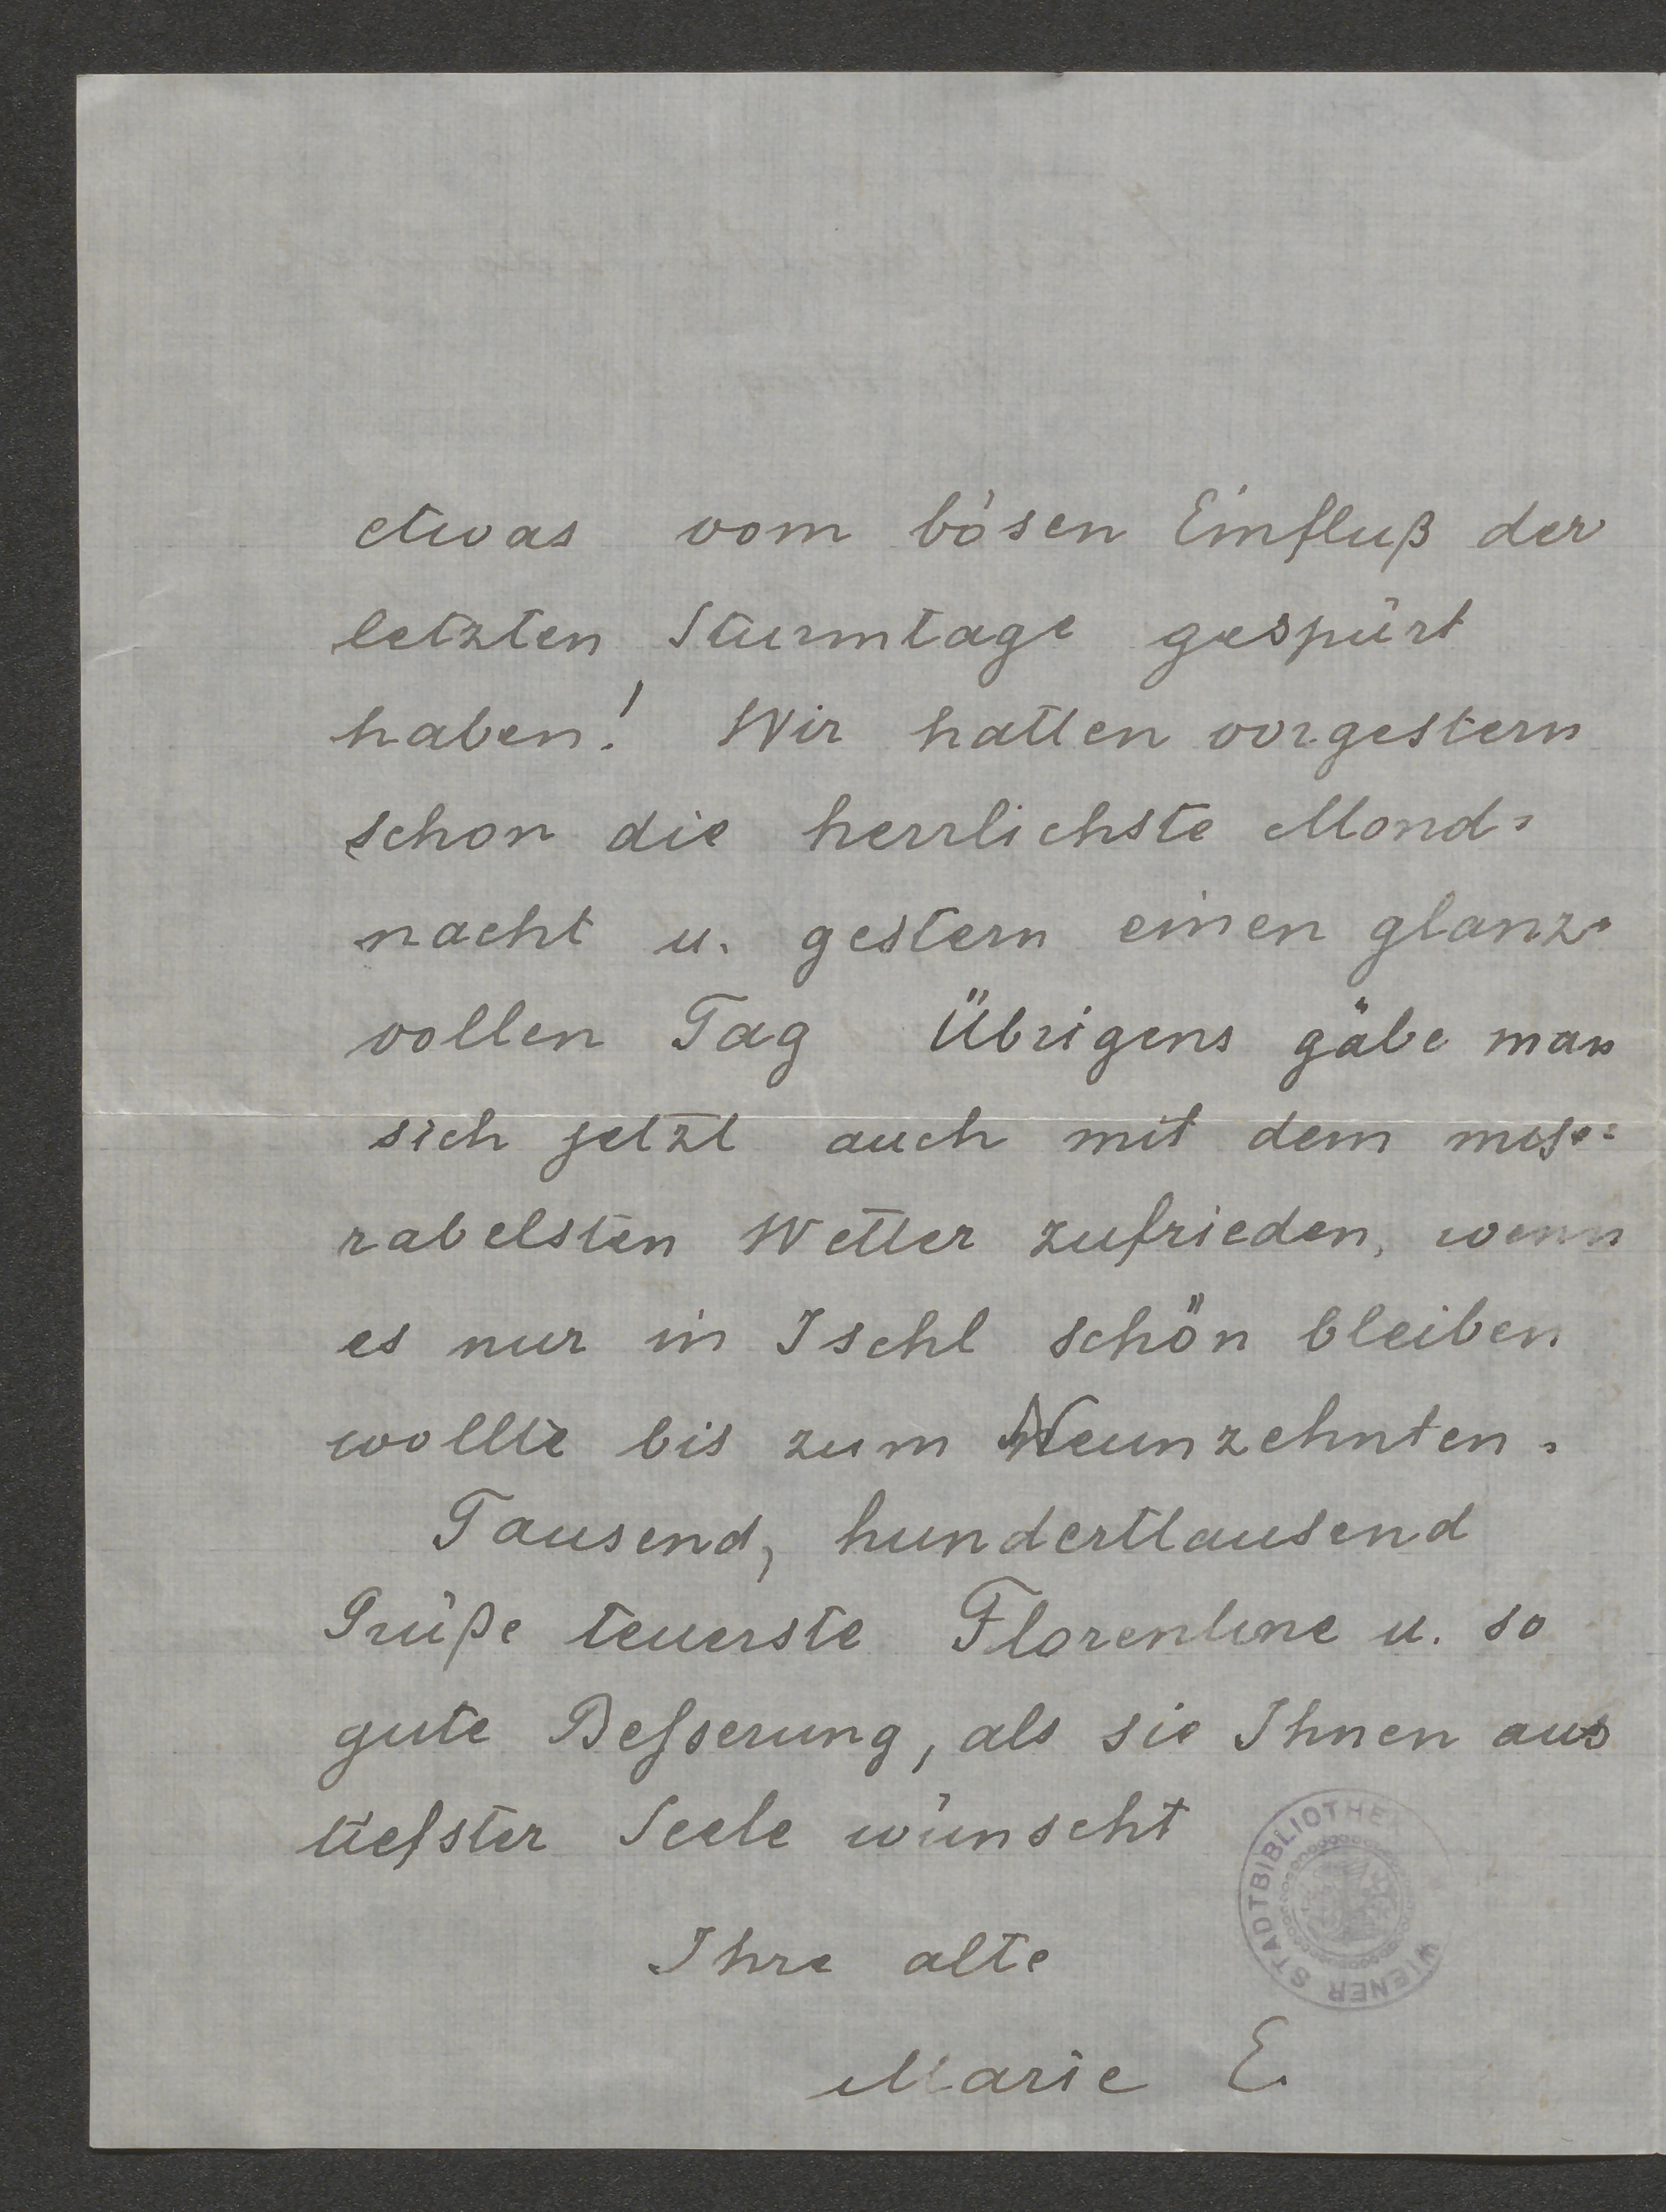 etwas vom bösen Einfluß der
letzten Sturmtage gespürt
haben! Wir hatten vorgestern
schon die herrlichste Mond-
nacht u. gestern einen glanz-
vollen Tag Übrigens gäbe man
sich jetzt auch mit dem mise=
rabelsten Wetter zufrieden, wenn
es nur in Ischl schön bleiben
wollte bis zum Neunzehnten.
Tausend, hunderttausend
Grüße teuerste Florentine u. so
gute Beſserung, als sie Ihnen aus
tiefster Seele wünscht
Ihre alte
Marie E.
WIENER STADTBIBLIOTHE